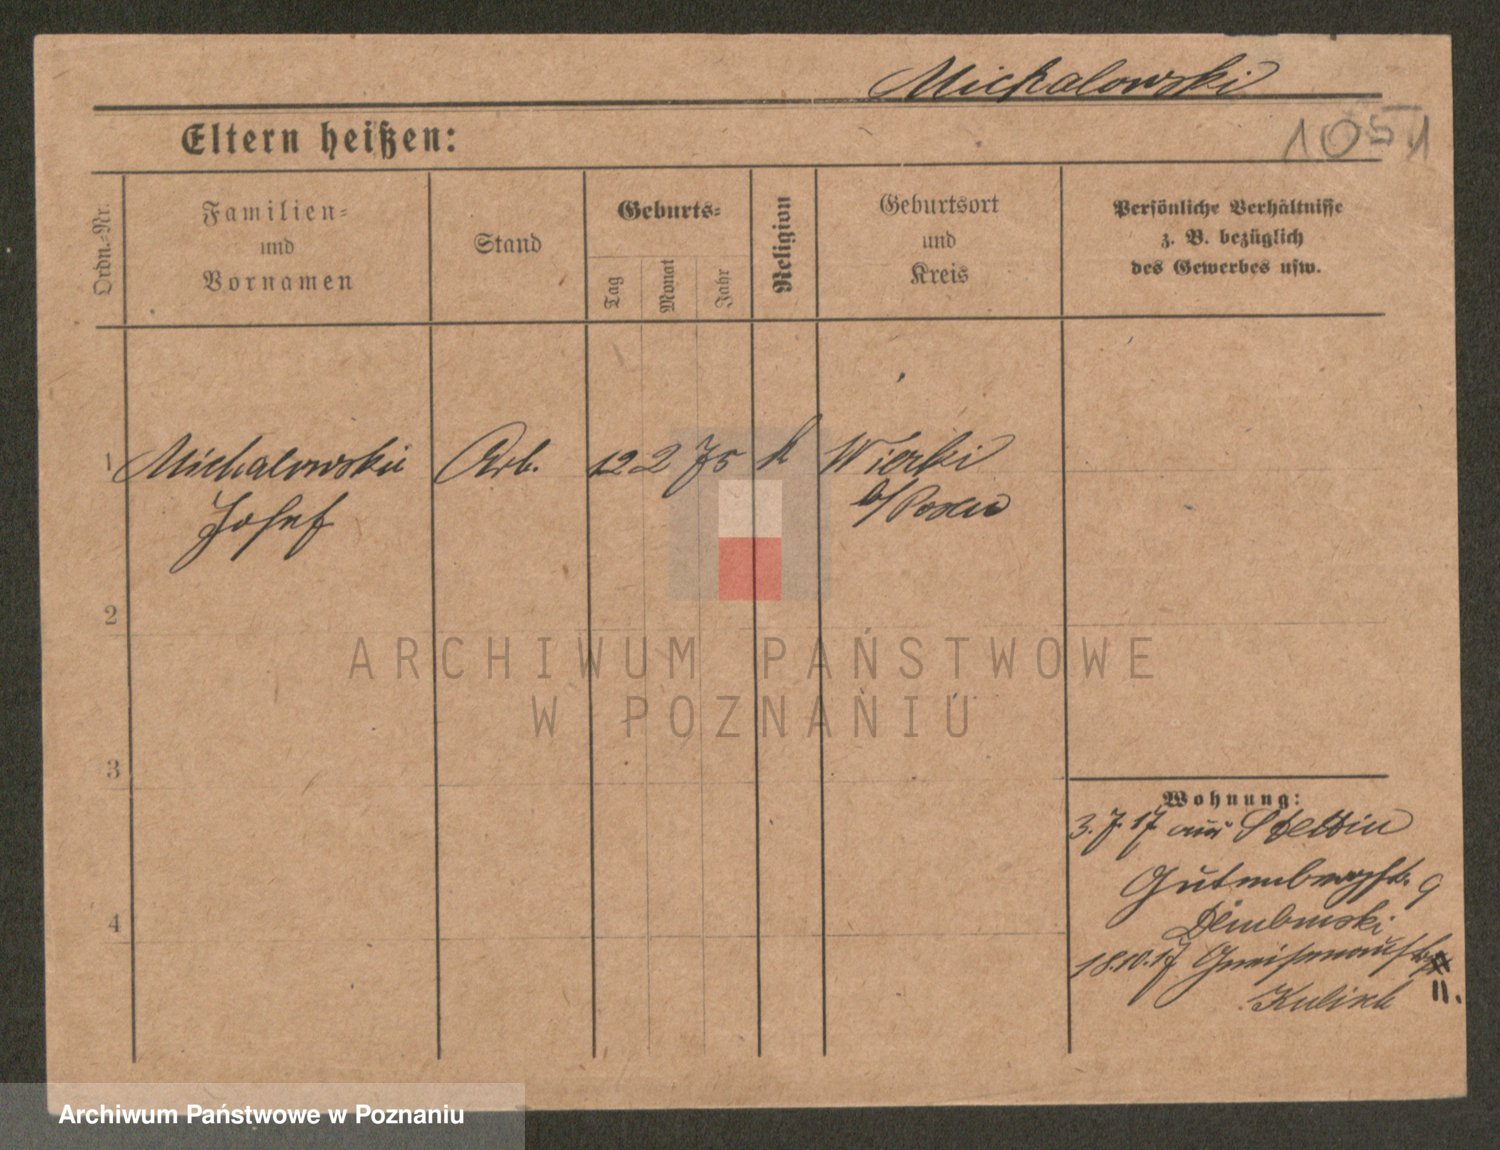 Michalowski
1051
Eltern heißen:
Ordn.-Nr.
Familien-
und
Vornamen
Stand
Geburts-
Tag
Monat
Jahr
Religion
Geburtsort
und
Kreis
Persönliche Verhältnisse
z. B. bezüglich
des Gewerbes usw.
1 Michalowski Arb. 12 2 75 k Wierki
Josef b/Posen
2
ARCHIWUM PAŃSTWOWE
W POZNANIU
3
Wohnung:
3.7.17 aus Stettin
Gutenbergstr. 9
Dembinski
4
18.10.17 Gneisenaustr.
11.
Archiwum Państwowe w Poznaniu